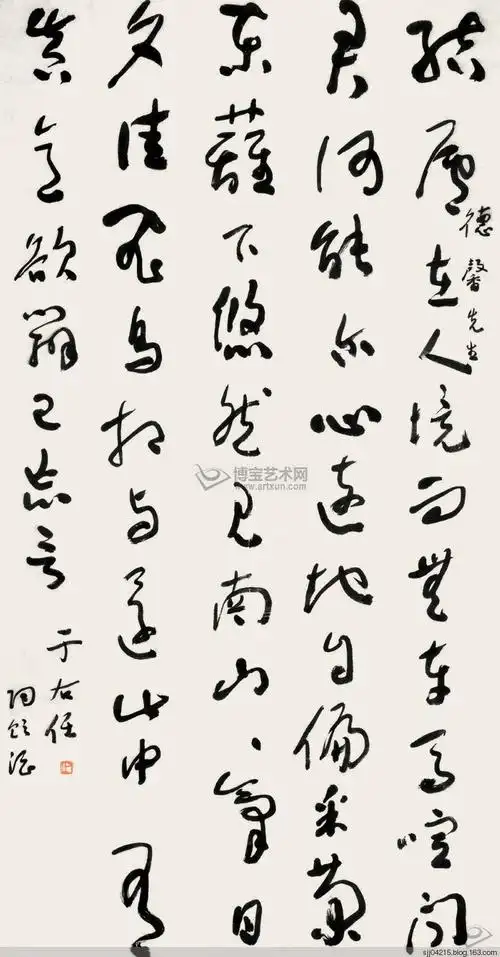 結廬在人境而無車馬喧問
德馨先生
君何能尔心遠地自偏采菊
東籬下悠然見南山、氣日
夕佳飛鳥相與還此中有
真意欲辯已忘言
于右任
陶飲酒
博宝艺术网
www.artxun.com
sjj04215.blog.163.com